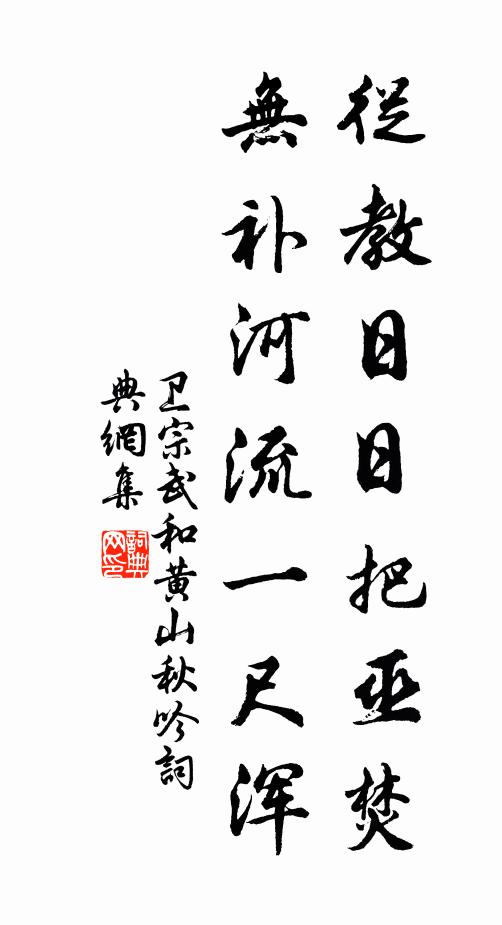 從教日日把巫焚
無补河流一尺浑
卫宗武和黄山秋吟詞
典網集
詞典
网印